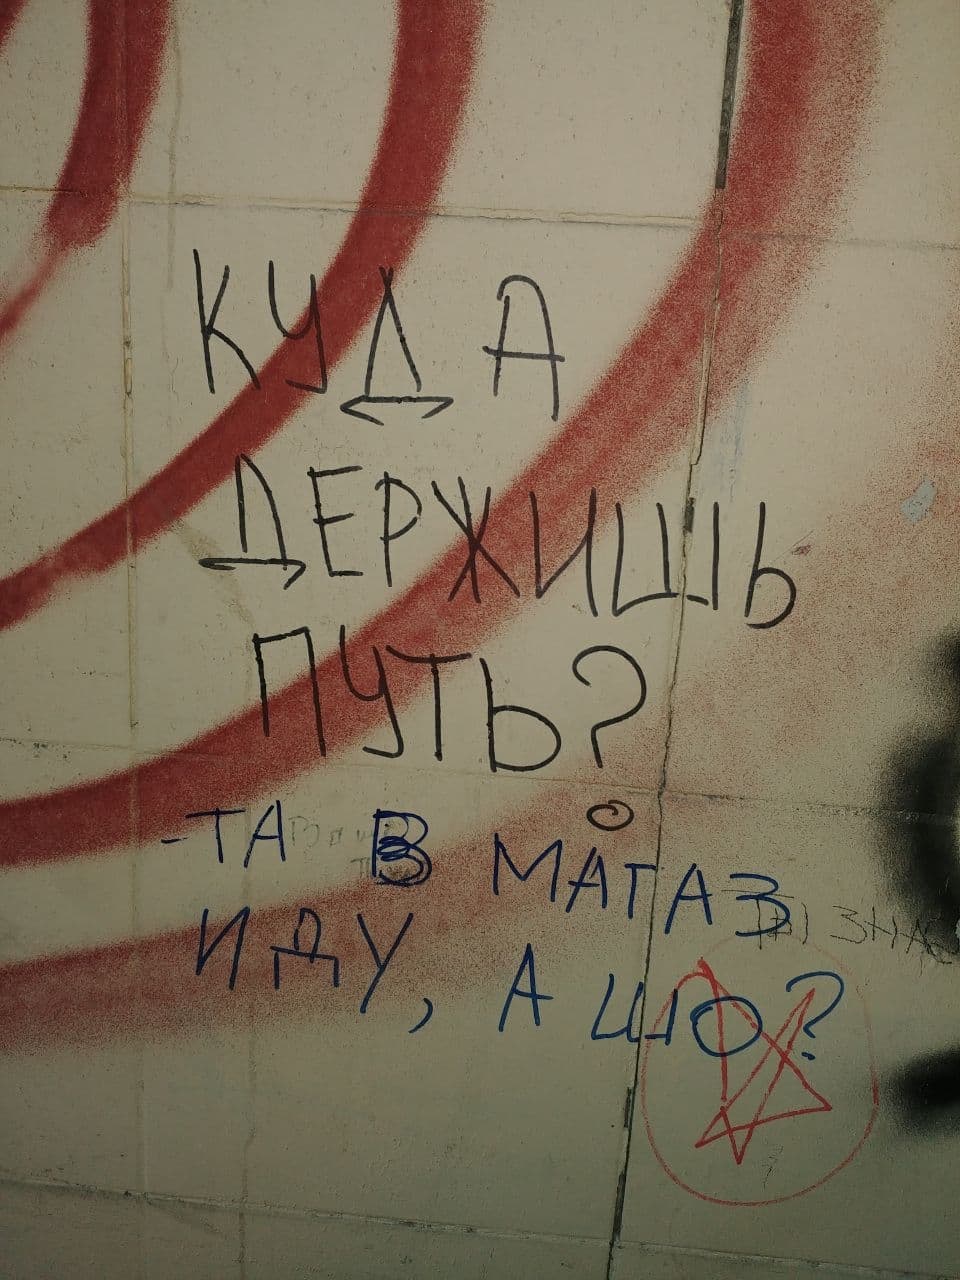 КУДА
ДЕРЖИШЬ
ПУТЬ?
-ТА В МАГАЗ
ИДУ, А ШО?